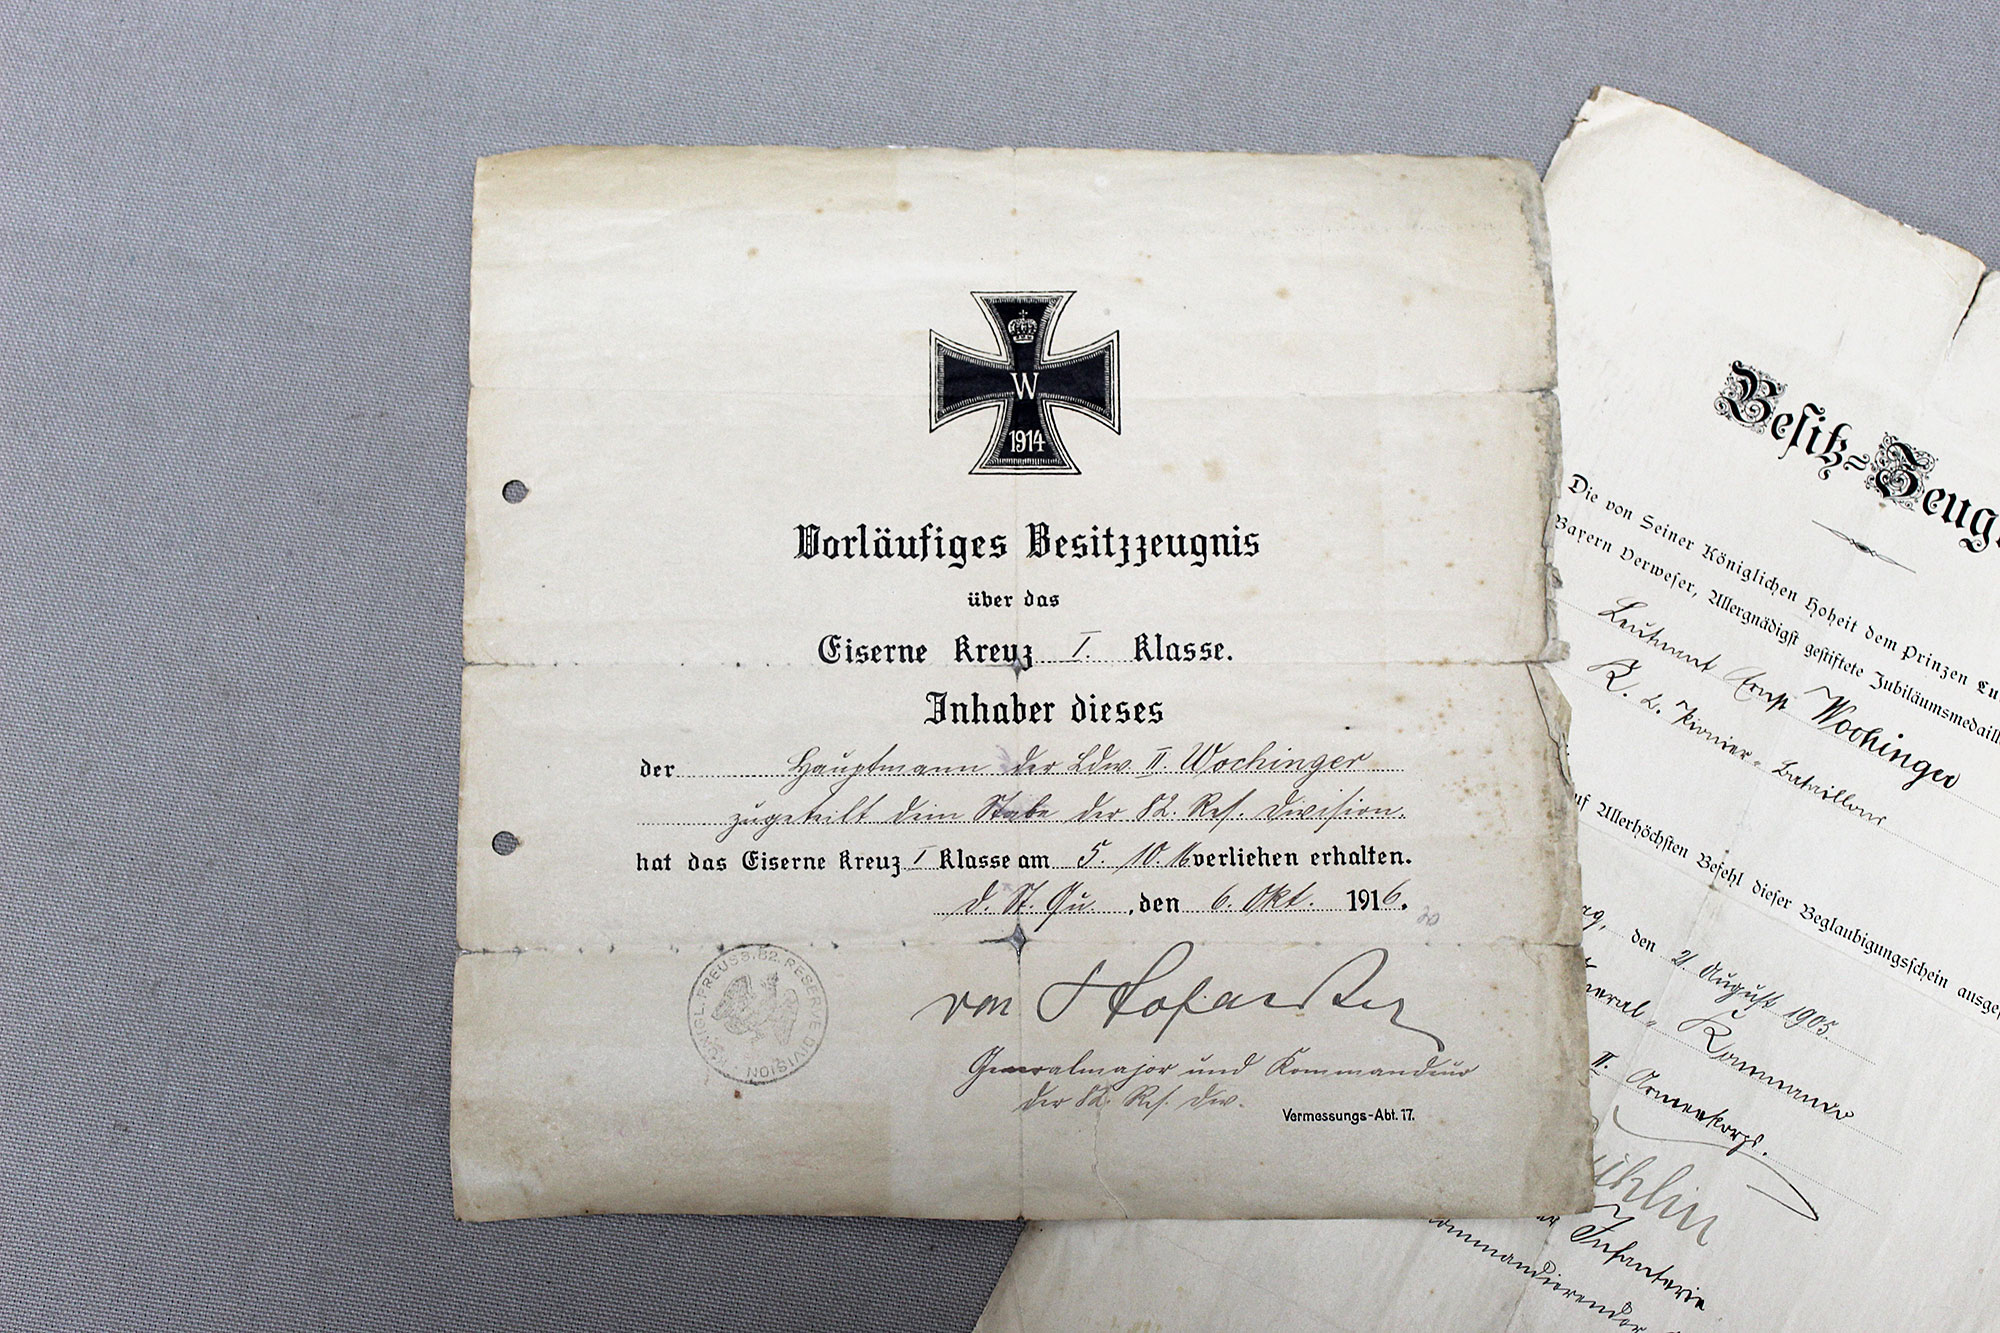 W
1914
Vorläufiges Besitzzeugnis
über das
Eiserne Kreuz I. Klasse.
Inhaber dieses
der Hauptmann der Ldw. II Wochinger
zugeteilt dem Stabe der 82. Res. Division.
hat das Eiserne Kreuz I Klasse am 5. 10. 16 verliehen erhalten.
d. St. Qu. , den 6. Okt. 1916.
KÖNIGL. PREUSS. 82. RESERVE DIVISION
von
Generalmajor und Kommandeur
der 82. Res. Div.
Vermessungs-Abt. 17.
Besitz-Zeug
Die von Seiner Königlichen Hoheit dem Prinzen Lu
Bayern Verweser, Allergnädigst gestiftete Jubiläumsmedaill
Leutnant Ernst Wochinger
K. 2. Pionier-Bataillons
uf Allerhöchsten Befehl dieser Beglaubigungsschein ausges
rg, den 21 August 1905.
General-Kommando
II. Armeekorps.
der Infanterie
ommandierender